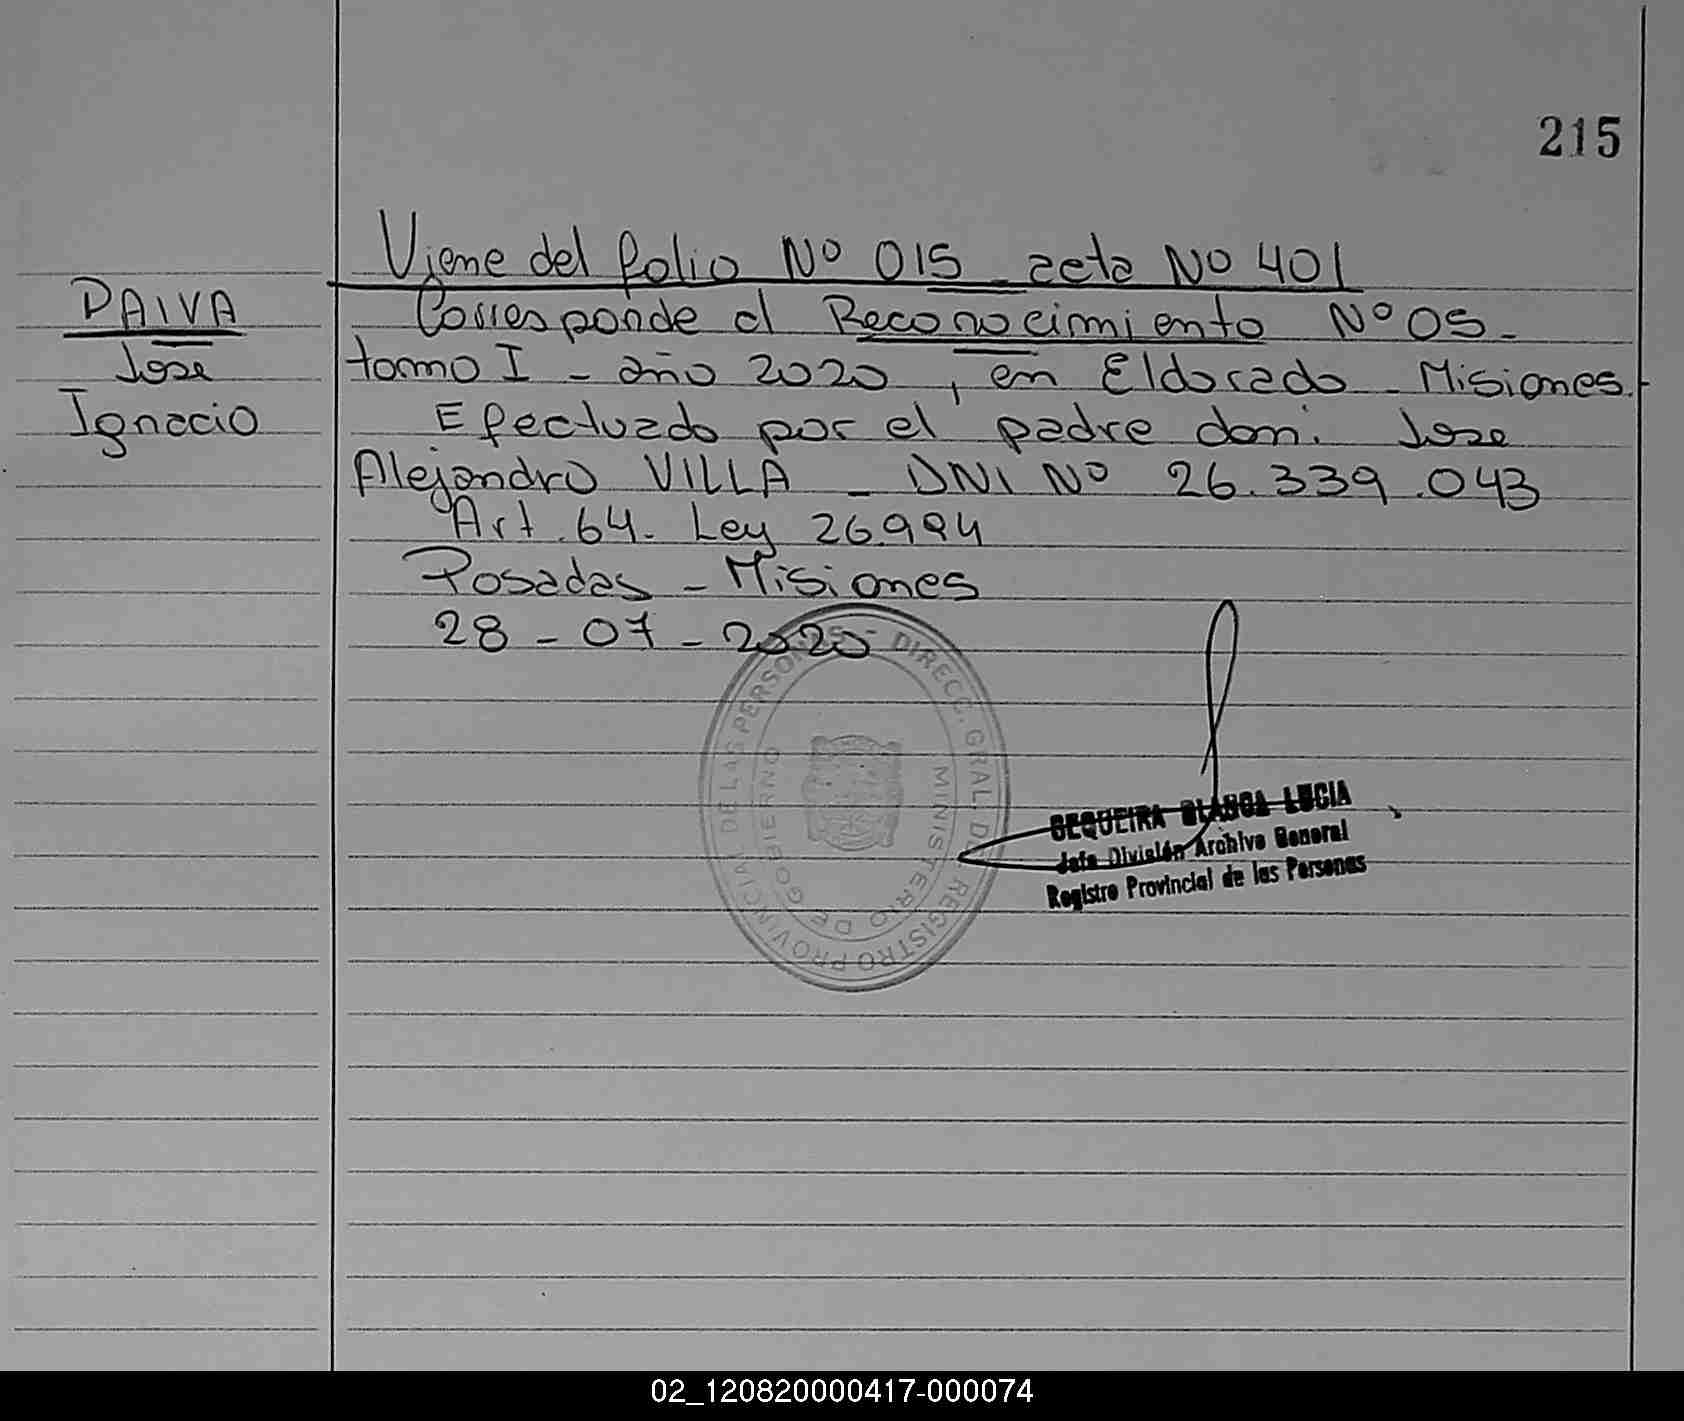 215
Viene del folio Nº 015 - acta Nº 401
PAIVA
Corresponde al Reconocimiento Nº 05 -
Jose
tomo I - año 2020, en Eldorado - Misiones.
Ignacio
Efectuado por el padre don: Jose
Alejandro VILLA - DNI Nº 26.339.043
Art. 64. Ley 26994
Posadas - Misiones
28 - 07 - 2020
REGISTRO PROVINCIAL DE LAS PERSONAS - DIRECC. GRAL. DEL
MINISTERIO DE GOBIERNO
SEQUEIRA BLANCA LUCIA
Jefe División Archivo General
Registro Provincial de las Personas
02_120820000417-000074